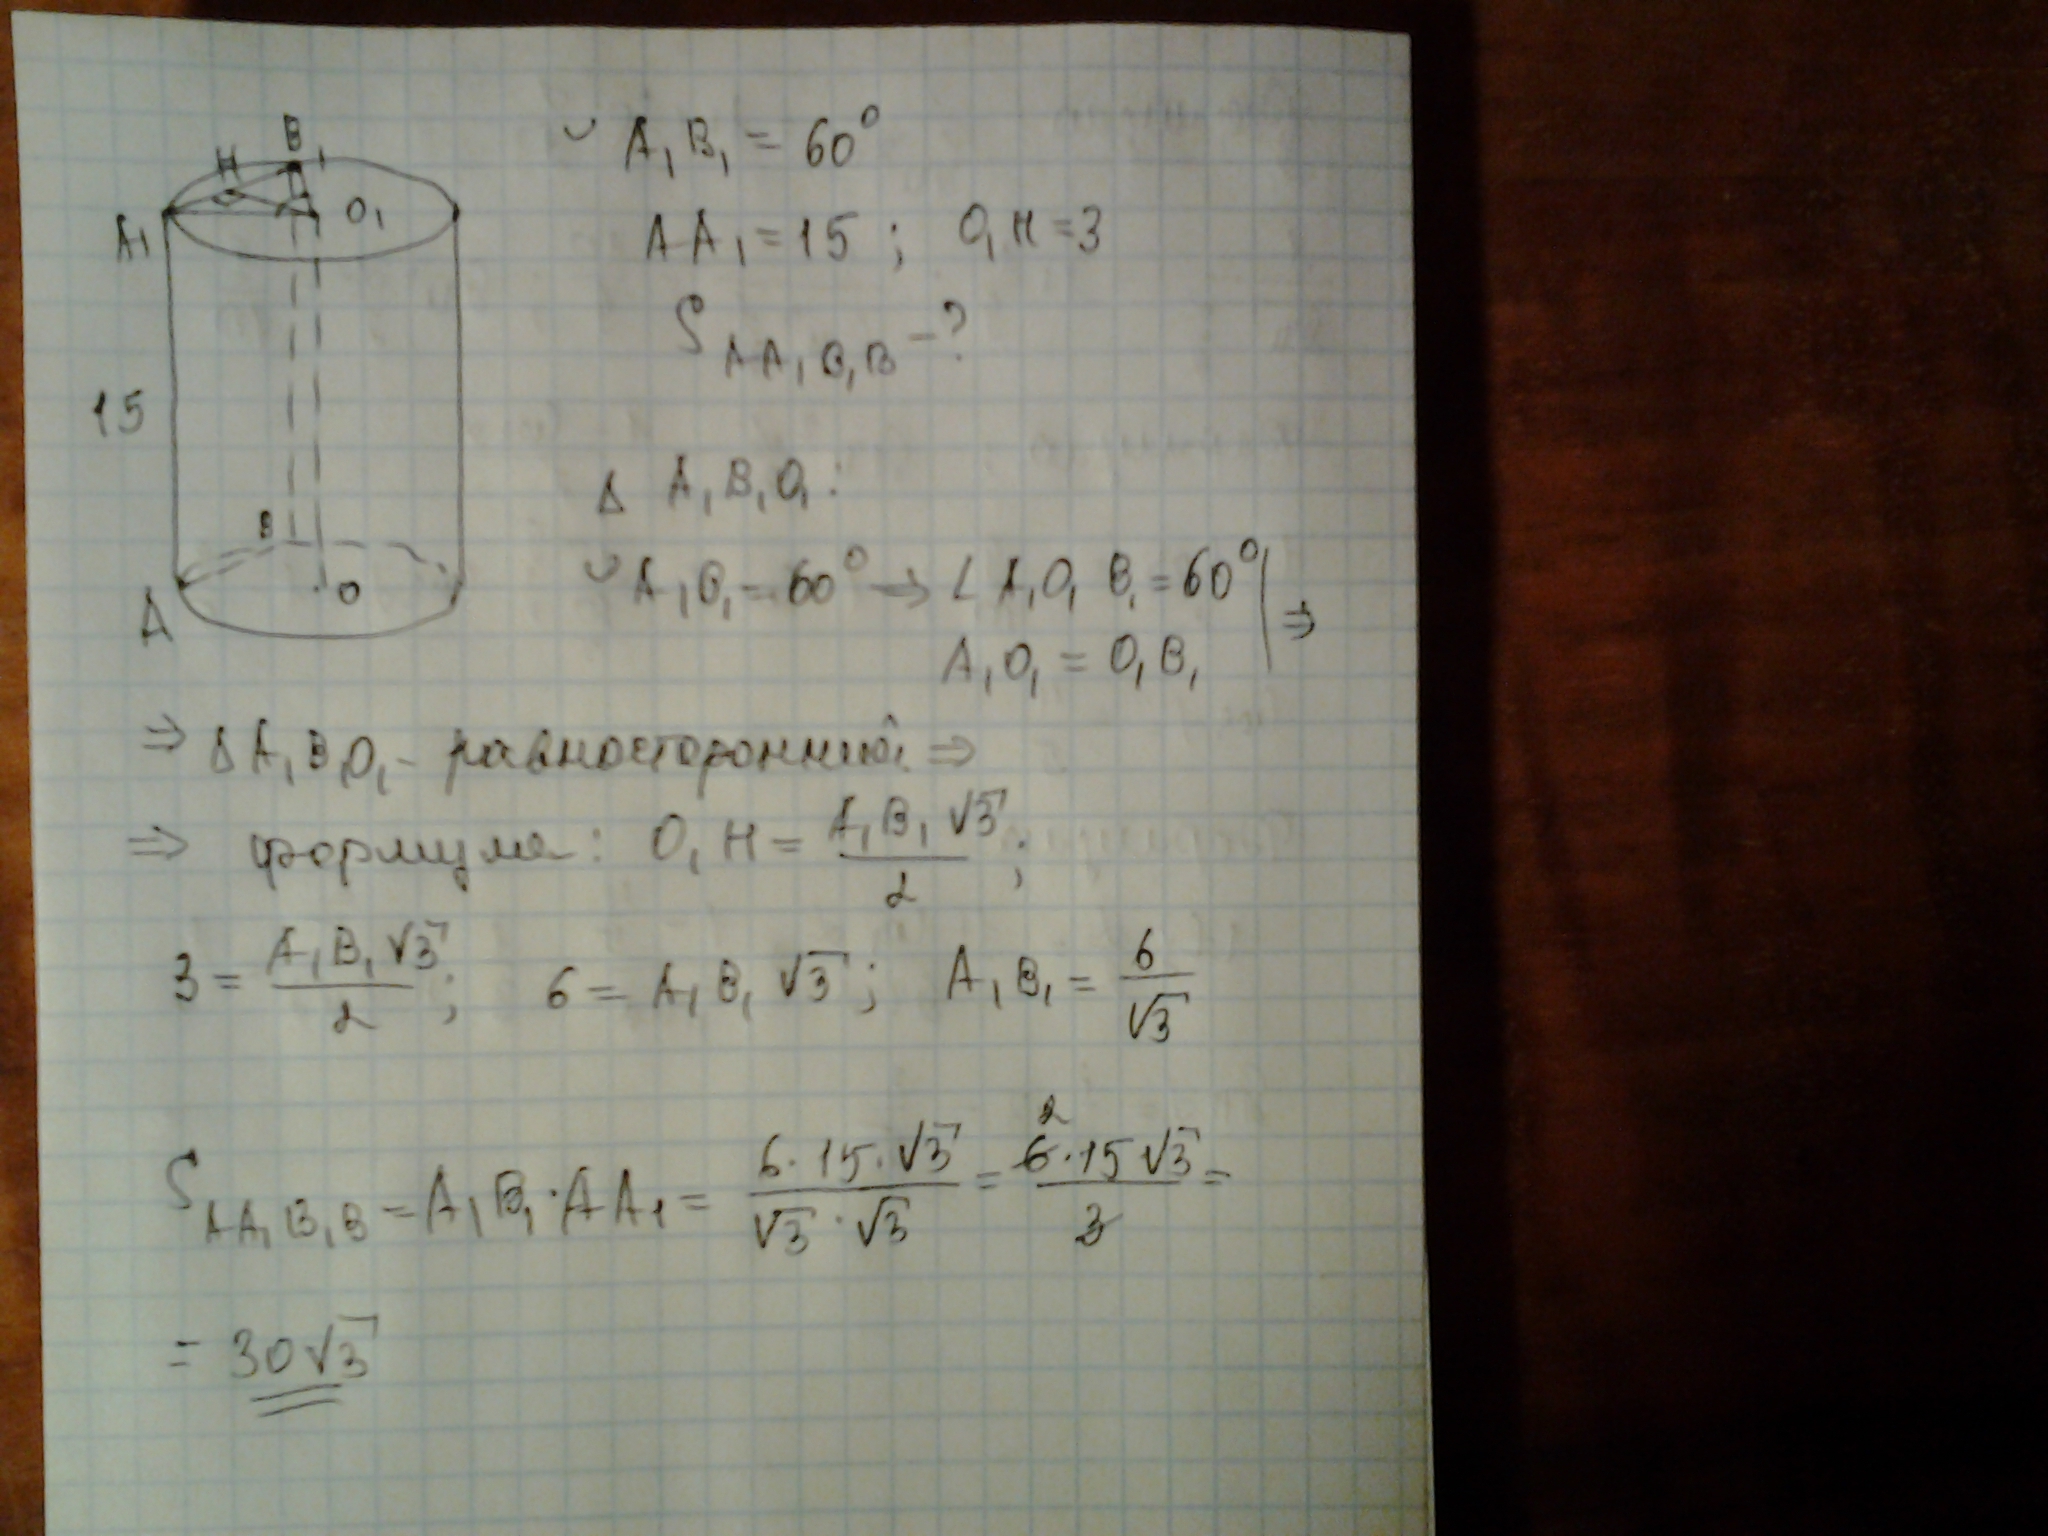 ◡ A₁B₁ = 60°
AA₁ = 15 ; O₁H = 3
S AA₁B₁B - ?
H
B₁
A₁
O₁
15
B
A
O
Δ A₁B₁O₁:
◡ A₁B₁ = 60° ⇒ ∠ A₁O₁B₁ = 60° | ⇒
A₁O₁ = O₁B₁
⇒ Δ A₁B₁O₁ - равносторонний ⇒
⇒ формула: O₁H = A₁B₁√3 / 2 ;
3 = A₁B₁√3 / 2 ; 6 = A₁B₁√3 ; A₁B₁ = 6 / √3
S AA₁B₁B = A₁B₁ · AA₁ = 6 · 15 · √3 / √3 · √3 = 2 6 · 15√3 / 3 =
= 30√3